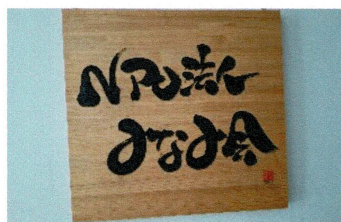 NPO法人
みなみ会